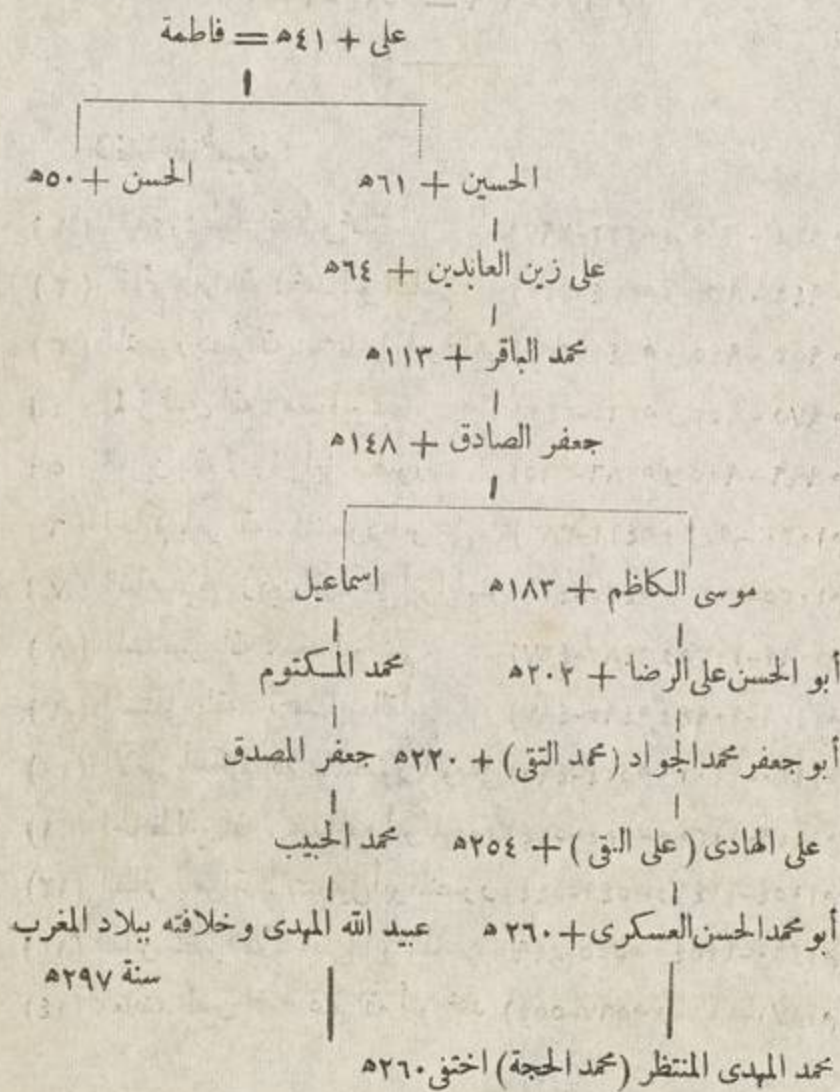 على + ٤١ه = فاطمة
الحسين + ٦١ه الحسن + ٥٠ه
على زين العابدين + ٦٤ه
محمد الباقر + ١١٣ه
جعفر الصادق + ١٤٨ه
موسى الكاظم + ١٨٣ه اسماعيل
أبو الحسن على الرضا + ٢٠٢ه محمد المكتوم
أبو جعفر محمد الجواد (محمد التقى) + ٢٢٠ه جعفر المصدق
على الهادى (على النقى) + ٢٥٤ه محمد الحبيب
أبو محمد الحسن العسكرى + ٢٦٠ه عبيد الله المهدى وخلافته ببلاد المغرب
سنة ٢٩٧ه
محمد المهدى المنتظر (محمد الحجة) اختفى ٢٦٠ه